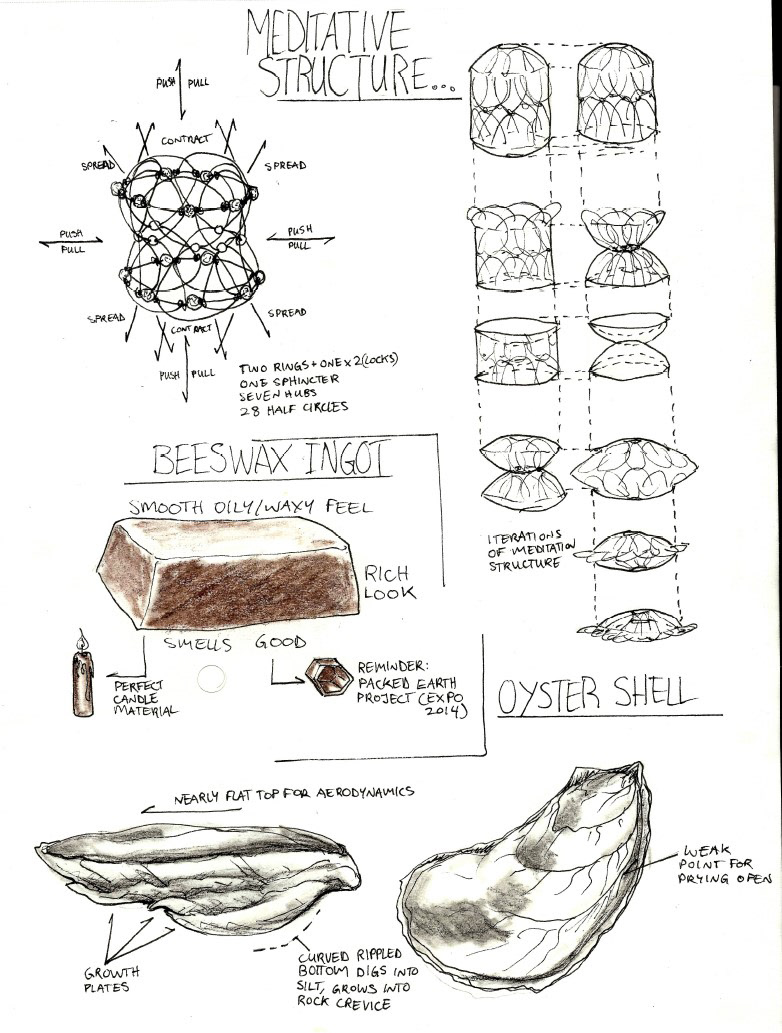 MEDITATIVE
STRUCTURE...
PUSH PULL
CONTRACT
SPREAD
SPREAD
PUSH
PULL
PUSH
PULL
SPREAD
SPREAD
CONTRACT
PUSH PULL
TWO RINGS + ONE x 2 (LOCKS)
ONE SPHINCTER
SEVEN HUBS
28 HALF CIRCLES
ITERATIONS
OF MEDITATION
STRUCTURE
BEESWAX INGOT
SMOOTH OILY/WAXY FEEL
RICH
LOOK
SMELLS GOOD
PERFECT
CANDLE
MATERIAL
REMINDER:
PACKED EARTH
PROJECT (EXPO
2014)
OYSTER SHELL
NEARLY FLAT TOP FOR AERODYNAMICS
GROWTH
PLATES
CURVED RIPPLED
BOTTOM DIGS INTO
SILT, GROWS INTO
ROCK CREVICE
WEAK
POINT FOR
PRYING OPEN